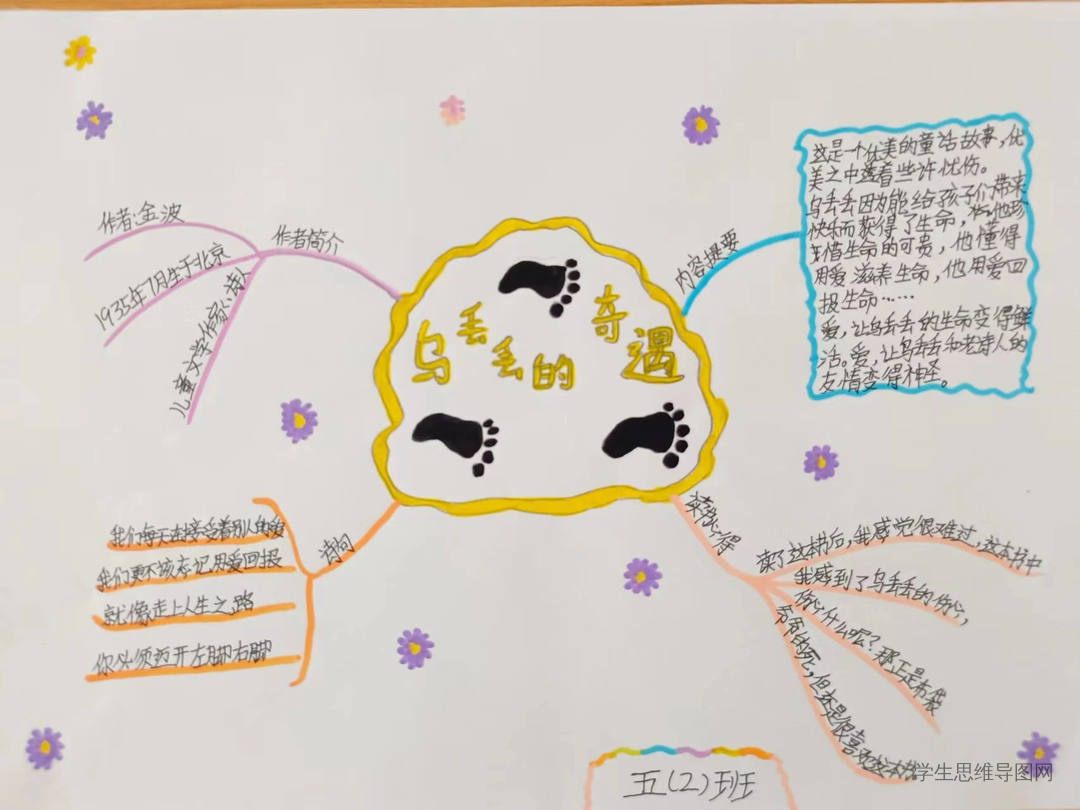 乌丢丢的奇遇
作者简介
作者:金波
1935年7月生于北京
儿童文学作家,诗人
内容提要
这是一个优美的童话故事,优
美之中透着些许忧伤。
乌丢丢因为能给孩子们带来
快乐而获得了生命,
惜生命的可贵,他懂得
用爱滋养生命,他用爱回
报生命……
爱,让乌丢丢的生命变得鲜
活。爱,让乌丢丢和老诗人的
友情变得神圣。
诗句
我们每天在接受着别人的爱
我们要不该忘记用爱回报
就像走上人生之路
你必须迈开左脚右脚
读书心得
读了这本书后,我感觉很难过,这本书中
我感到了乌丢丢的伤心,
伤心什么呢?那正是布袋
爷爷的死,但还是很喜欢这本书
五(2)班
学生思维导图网